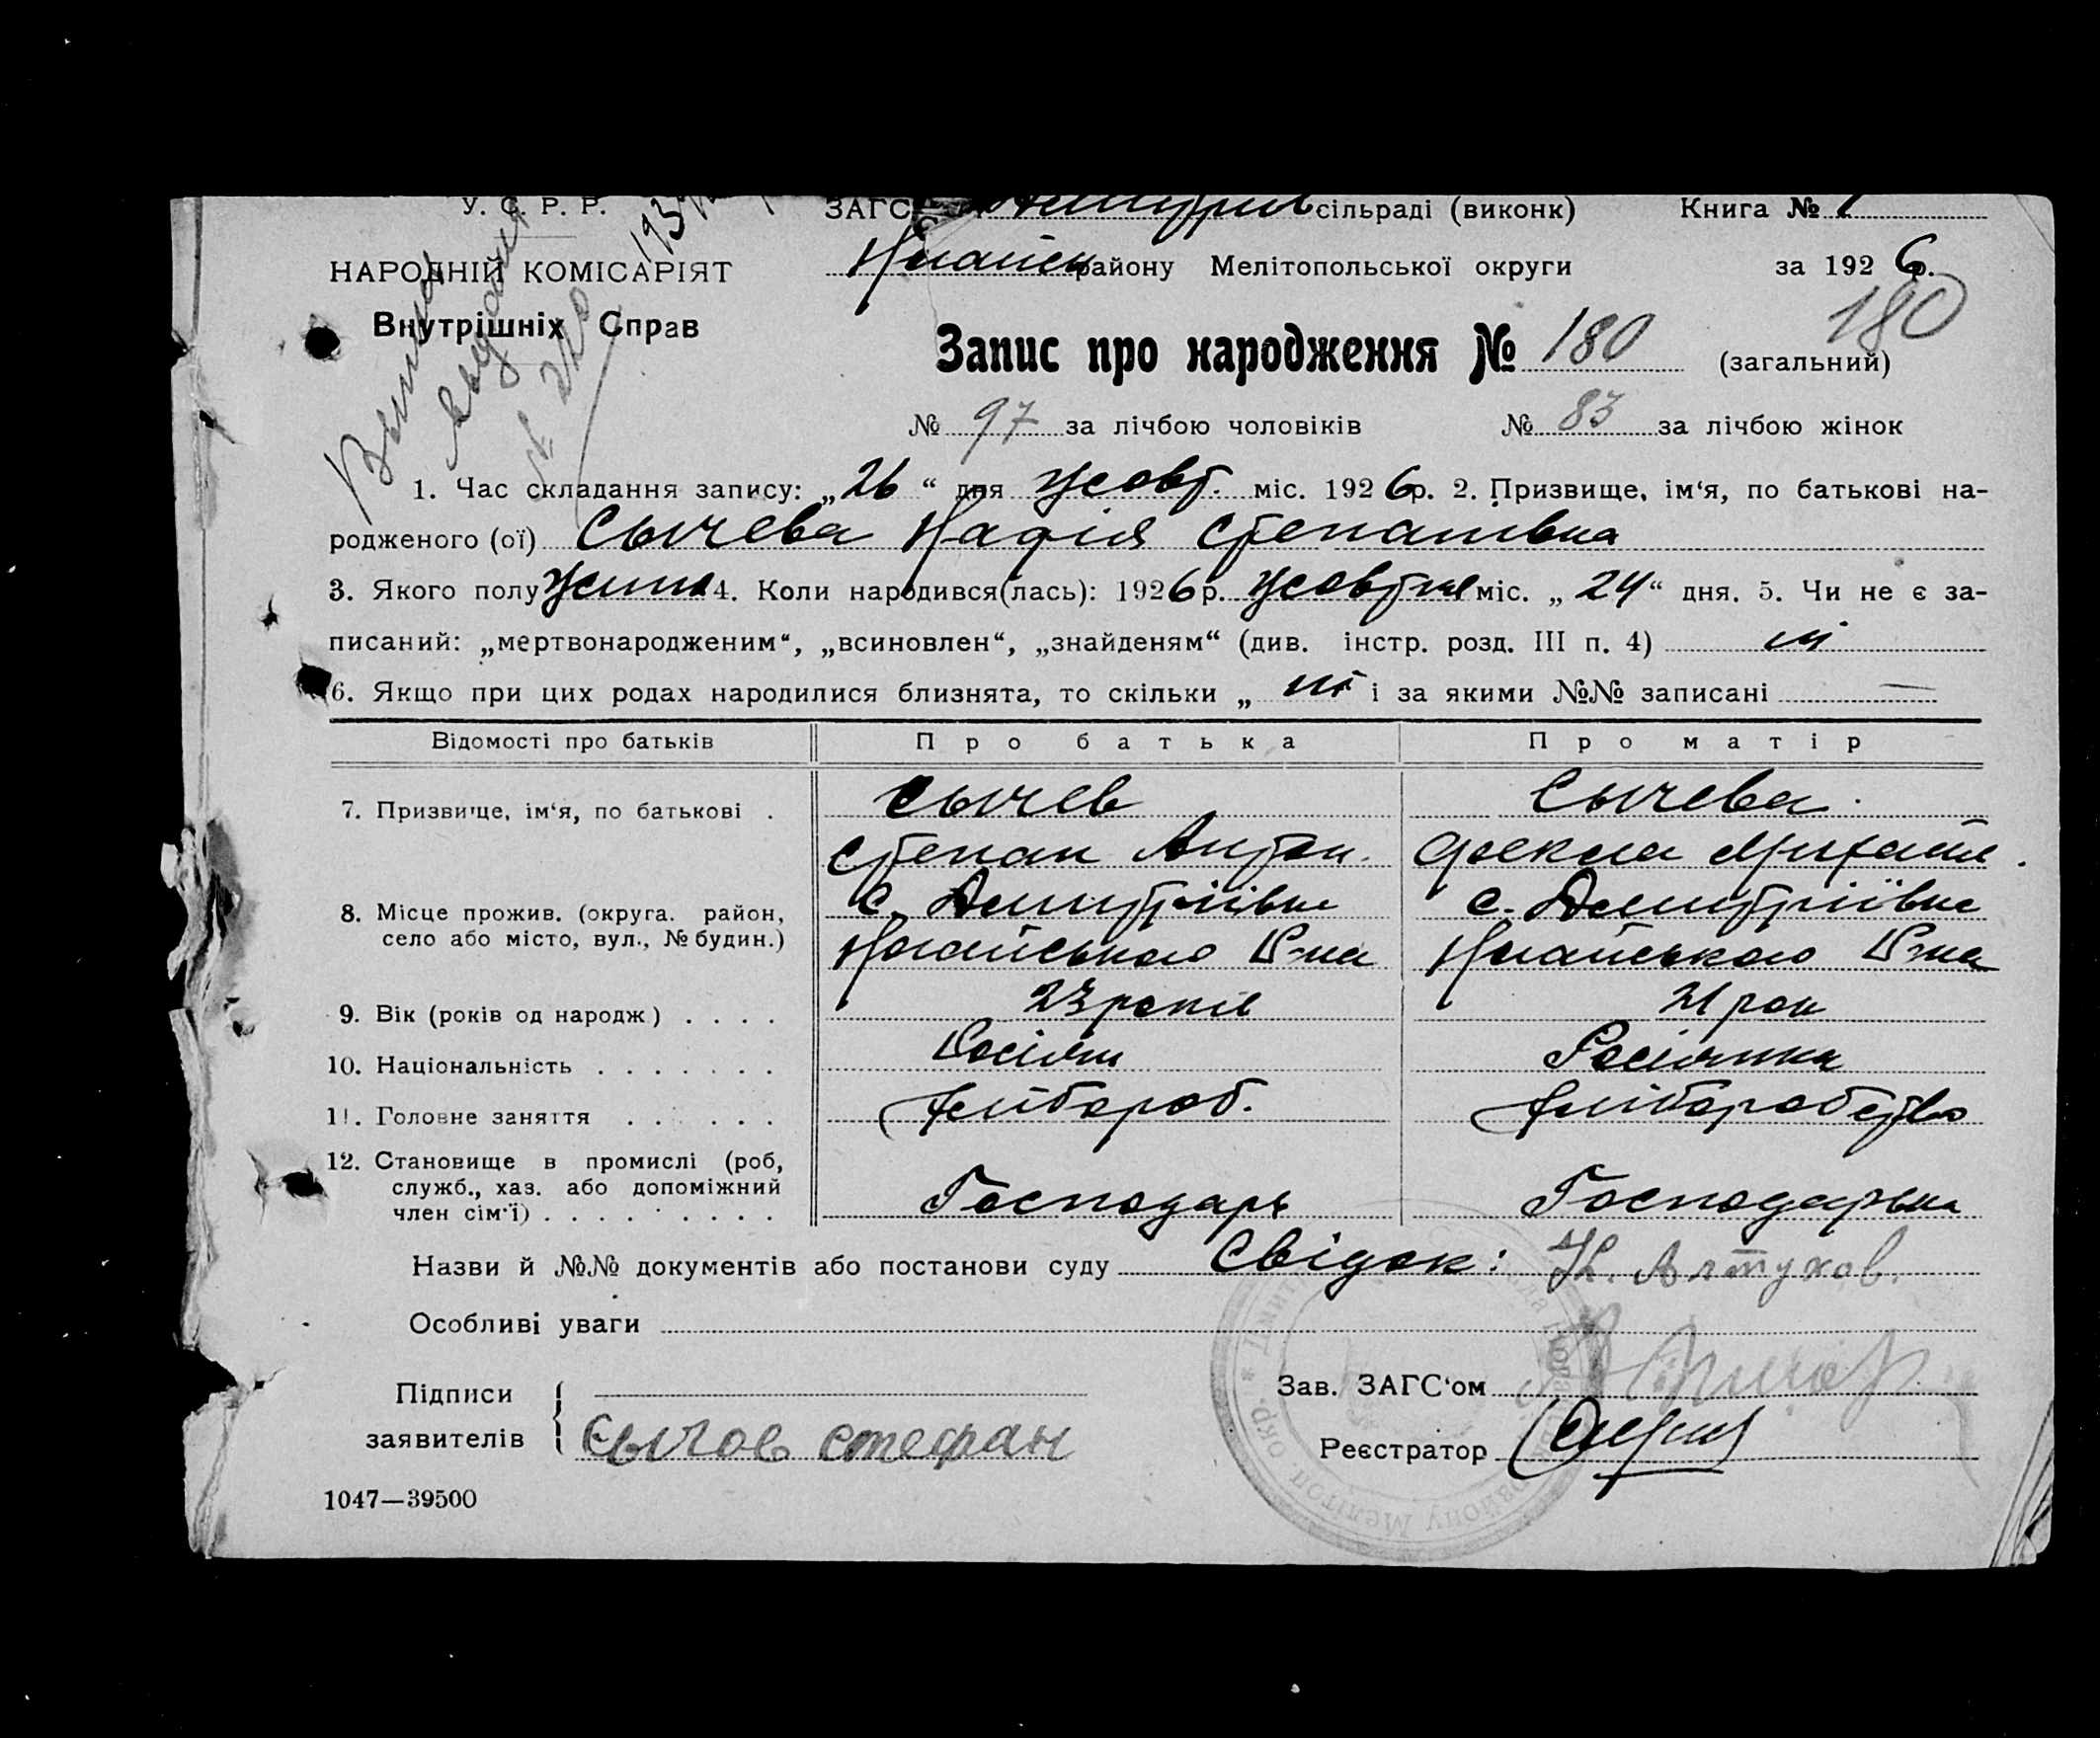 У. С. Р. Р.
ЗАГС сільраді (виконк) Книга №
НАРОДНІЙ КОМІСАРІЯТ району Мелітопольської округи за 1926 р.
Внутрішніх Справ
180
Запис про народження № 180 (загальний)
№ 97 за лічбою чоловіків № 83 за лічбою жінок
1. Час складання запису: „26“ дня жовт. міс. 1926 р. 2. Призвище, ім‘я, по батькові на-
родженого (ої) Сычева Надія Степанівна
3. Якого полу 4. Коли народився(лась): 1926 р. жовтня міс. „24“ дня. 5. Чи не є за-
писаний: „мертвонародженим“, „всиновлен“, „знайденям“ (див. інстр. розд. III п. 4) ні
6. Якщо при цих родах народилися близнята, то скільки „ ні і за якими №№ записані —
Відомості про батьків Про батька Про матір
7. Призвище, ім‘я, по батькові . Сычев Сычева
Степан Антон. Фекла Михайл.
8. Місце прожив. (округа. район, с. Дмитріівка с. Дмитріївка
село або місто, вул., № будин.) Ногайського Р-на Ногайського Р-на
9. Вік (років од народж) . . . . 23 років 21 рок
10. Національність . . . . . . . Росіян Росіянка
11. Головне заняття . . . . . . Хлібороб. Хліборобство
12. Становище в промислі (роб,
служб., хаз. або допоміжний
член сім‘ї) . . . . . . . . . Господарь Господарька
Назви й №№ документів або постанови суду Свідок: Алтухов.
Особливі уваги
Підписи
Зав. ЗАГС‘ом
заявителів Сычов Стефан
Реєстратор
1047—39500